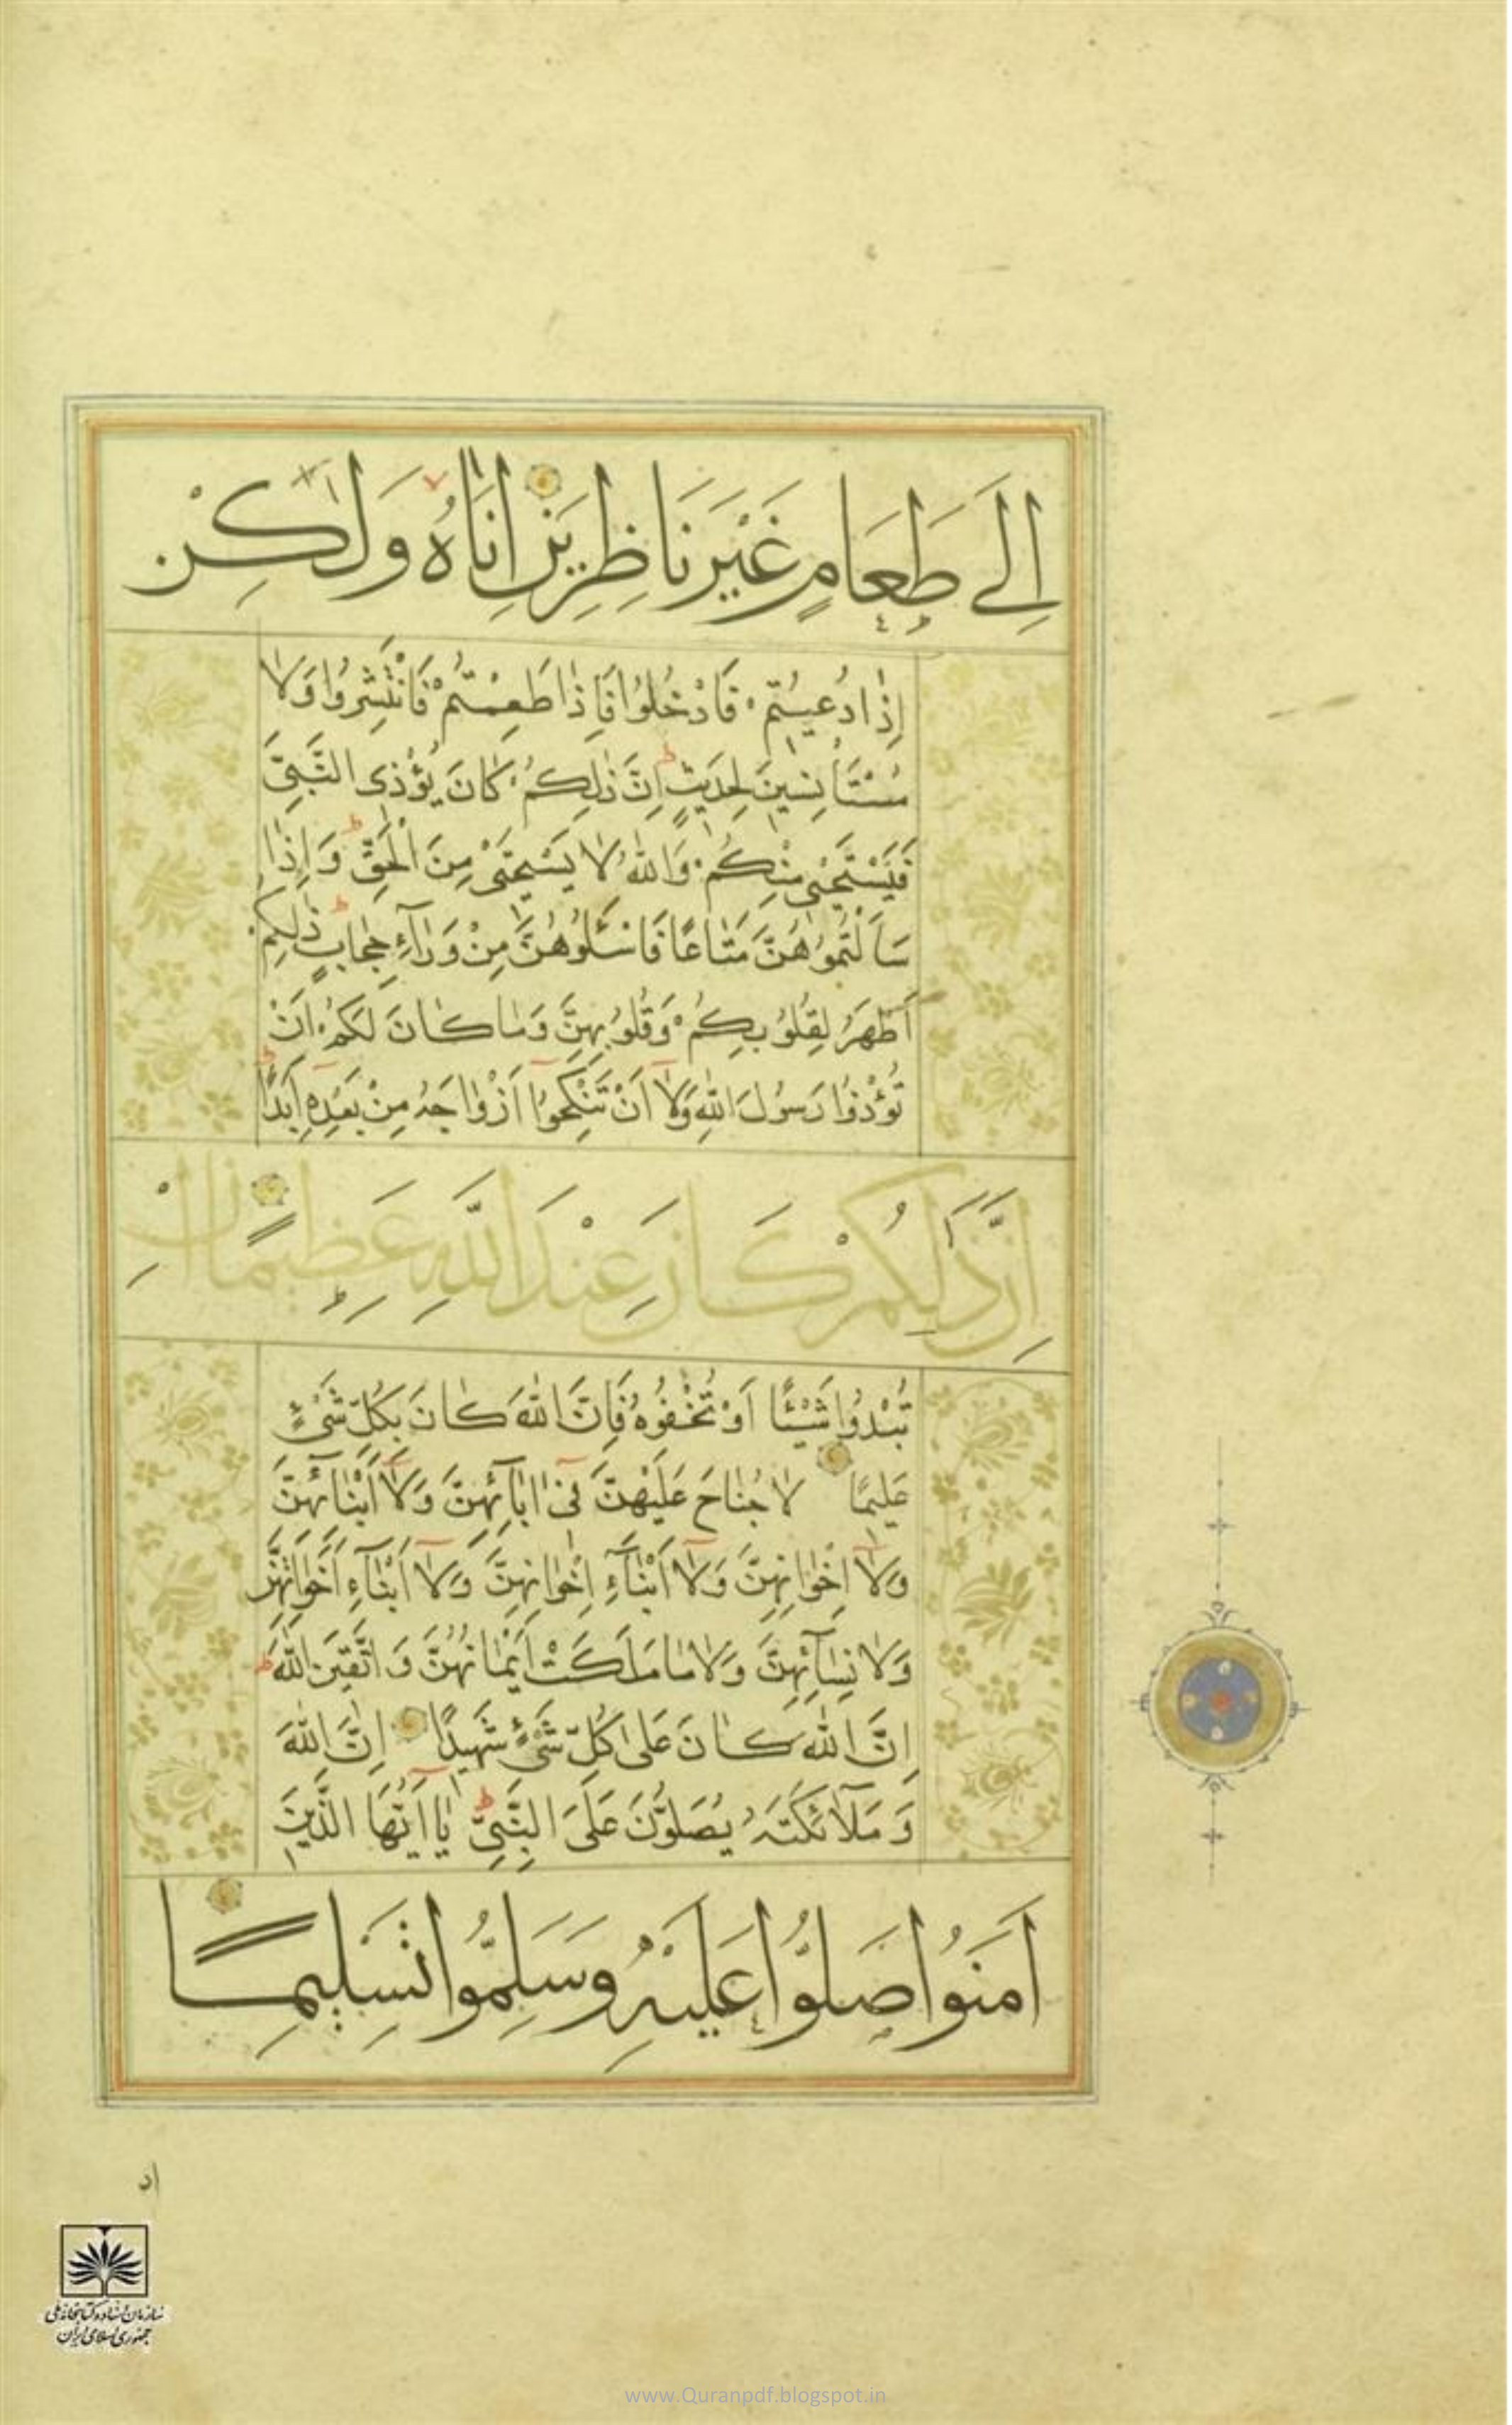 اِلٰی طَعَامٍ غَيْرَ نَاظِرِينَ اِنَاهُ وَلٰكِنْ
اِذٰا دُعيتُمْ فَادْخُلُوا فَاِذٰا طَعِمْتُمْ فَانْتَشِرُوا وَلٰا
مُسْتَأْنِسينَ لِحَديثٍ اِنَّ ذٰلِكُمْ كٰانَ يُؤْذِی النَّبِیَّ
فَيَسْتَحْيی مِنْكُمْ وَاللّٰهُ لٰا يَسْتَحْيی مِنَ الْحَقِّ وَاِذٰا
سَاَلْتُمُوهُنَّ مَتٰاعًا فَاسْئَلُوهُنَّ مِنْ وَرٰآءِ حِجٰابٍ ذٰلِكُمْ
اَطْهَرُ لِقُلُوبِكُمْ وَقُلُوبِهِنَّ وَمٰا كٰانَ لَكُمْ اَنْ
تُؤْذُوا رَسُولَ اللّٰهِ وَلٰا اَنْ تَنْكِحُوا اَزْوٰاجَهُ مِنْ بَعْدِهِ اَبَدًا
اِنَّ ذٰلِكُمْ كَانَ عِنْدَ اللّٰهِ عَظِيمًا اِنْ
تُبْدُوا شَيْئًا اَوْ تُخْفُوهُ فَاِنَّ اللّٰهَ كٰانَ بِكُلِّ شَیْءٍ
عَليمًا لٰا جُنٰاحَ عَلَيْهِنَّ فی اٰبٰآئِهِنَّ وَلٰا اَبْنٰائِهِنَّ
وَلٰا اِخْوٰانِهِنَّ وَلٰا اَبْنٰآءِ اِخْوٰانِهِنَّ وَلٰا اَبْنٰآءِ اَخَوٰاتِهِنَّ
وَلٰا نِسٰآئِهِنَّ وَلٰا مٰا مَلَكَتْ اَيْمٰانُهُنَّ وَاتَّقينَ اللّٰهَ
اِنَّ اللّٰهَ كٰانَ عَلیٰ كُلِّ شَیْءٍ شَهيدًا اِنَّ اللّٰهَ
وَمَلٰٓائِكَتَهُ يُصَلُّونَ عَلَی النَّبِیِّ يٰا اَيُّهَا الَّذينَ
اٰمَنُوا صَلُّوا عَلَيْهِ وَسَلِّمُوا تَسْلِيمًا
سازمان اسناد و کتابخانه ملی
جمهوری اسلامی ایران
www.Quranpdf.blogspot.in